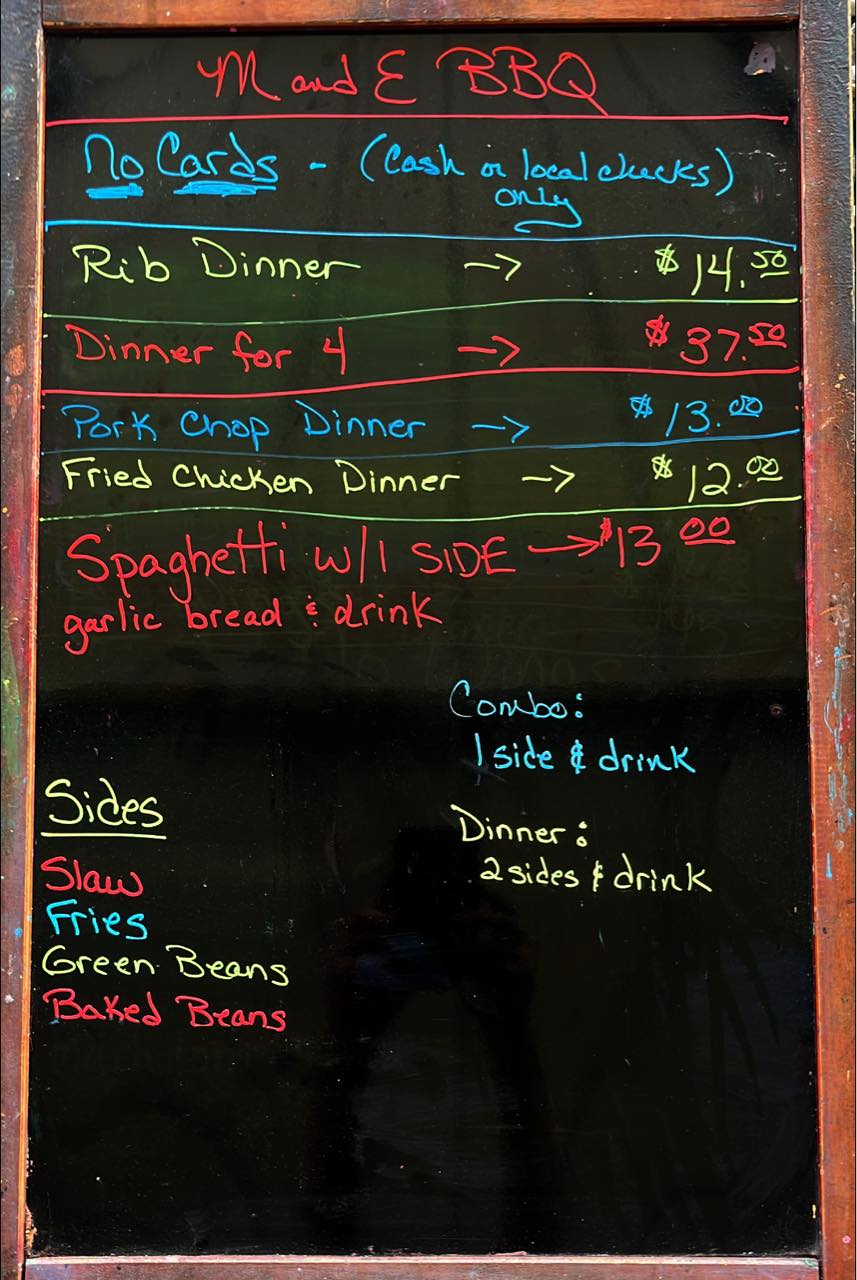 M and E BBQ
No Cards - (Cash or local checks)
only
Rib Dinner → $14.50
Dinner for 4 → $37.50
Pork Chop Dinner → $13.00
Fried Chicken Dinner → $12.00
Spaghetti w/1 SIDE → $13 00
garlic bread & drink
Combo:
1 side & drink
Dinner:
2 sides & drink
Sides
Slaw
Fries
Green Beans
Baked Beans